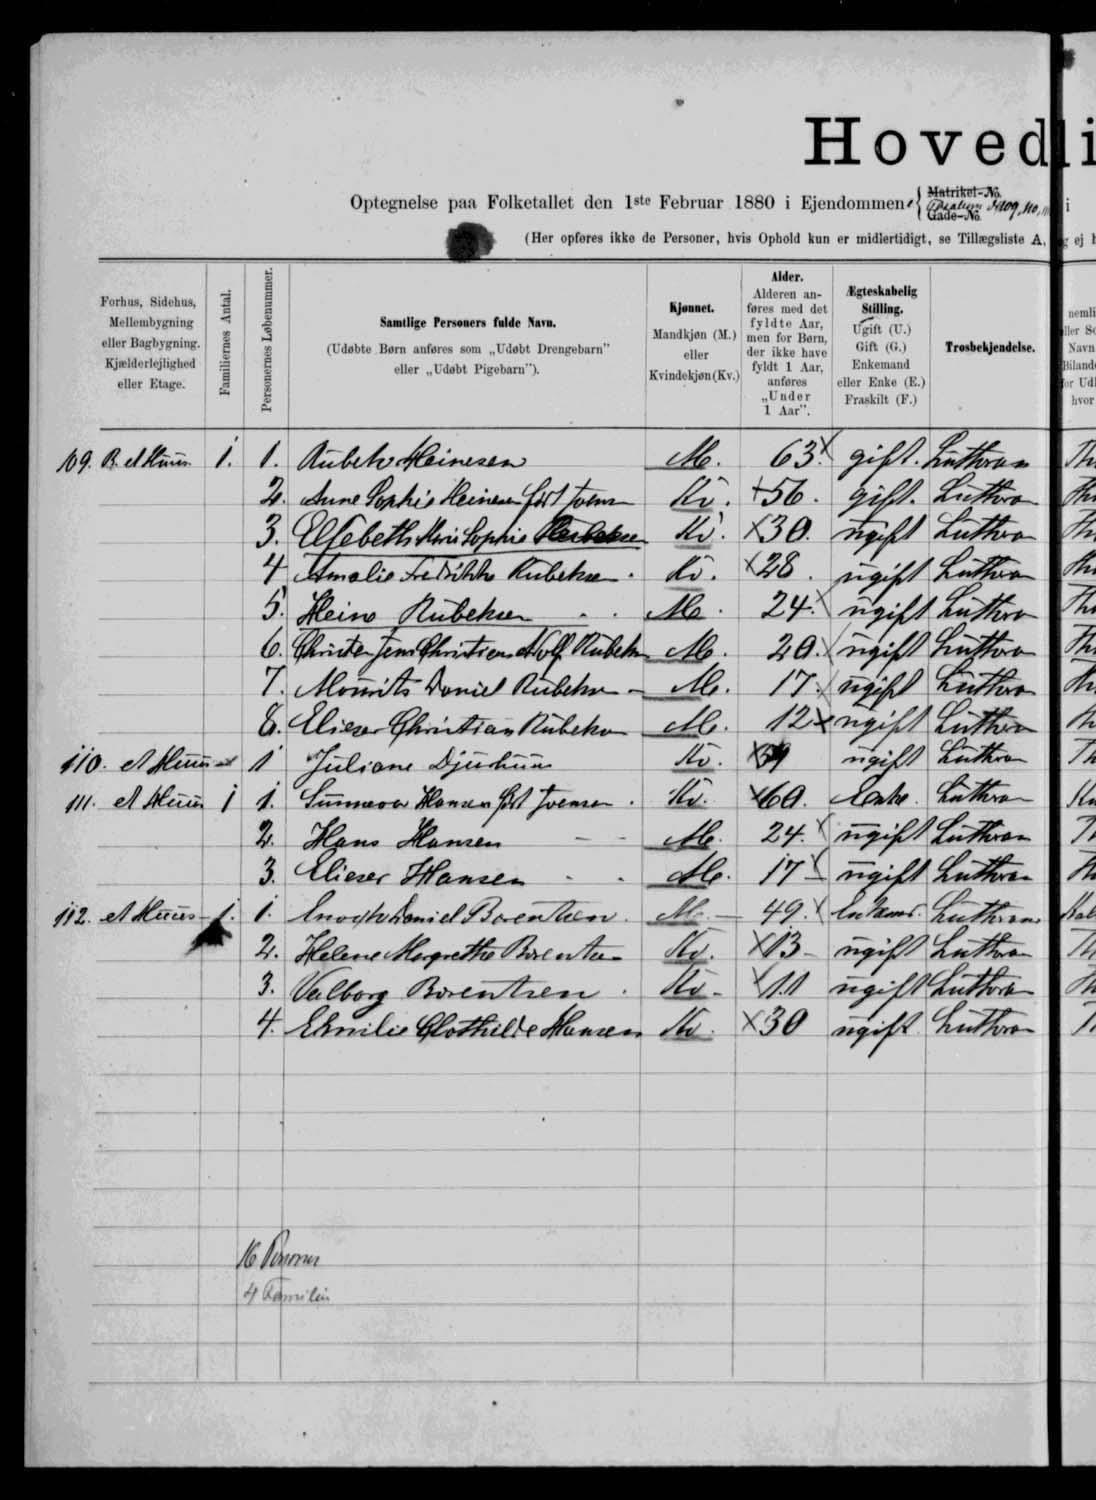 Hovedli
Optegnelse paa Folketallet den 1ste Februar 1880 i Ejendommen Matrikel-No. Gade-No. 109, 110, 111 i
(Her opføres ikke de Personer, hvis Ophold kun er midlertidigt, se Tillægsliste A, og ej
Forhus, Sidehus, Mellembygning eller Bagbygning. Kjælderlejlighed eller Etage.
Familiernes Antal.
Personernes Løbenummer.
Samtlige Personers fulde Navn.
(Udøbte Børn anføres som „Udøbt Drengebarn" eller „Udøbt Pigebarn").
Kjønnet.
Mandkjøn (M.) eller Kvindekjøn (Kv.)
Alder.
Alderen anføres med det fyldte Aar, men for Børn, der ikke have fyldt 1 Aar, anføres „Under 1 Aar".
Ægteskabelig Stilling.
Ugift (U.) Gift (G.) Enkemand eller Enke (E.) Fraskilt (F.)
Trosbekjendelse.
109. et Huus 1. 1. Rubek Heinesen M. 63. gift. Luthran
2. Anne Sophie Heinesen født Joensen Kv. 56. gift. Luthran
3. Elsebeth Marie Sophie Rubeksen Kv. 30. ugift Luthran
4 Amalie Fredrikke Rubeksen Kv. 28. ugift Luthran
5. Heine Rubeksen M. 24. ugift Luthran
6. Jens Christian Rubeksen M. 20. ugift Luthran
7. Mourits Daniel Rubeksen M. 17. ugift Luthran
8. Elieser Christian Rubeksen M. 12 ugift Luthran
110. et Huus 1 Juliane Djurhuus Kv. ugift Luthran
111. et Huus 1 1. Sunneva Hansen født Joensen Kv. 60. Enke. Luthran
2. Hans Hansen M. 24. ugift Luthran
3. Elieser Hansen M. 17 ugift Luthran
112. et Huus 1. 1. Enogh Daniel Berentsen M. 49. Enkemd. Luthran
2. Helene Margrethe Berentsen Kv. 13 ugift Luthran
3. Valborg Berentsen Kv. 11 ugift Luthran
4. Emilie Clothilde Hansen Kv. 30 ugift Luthran
16 Personer
4 Familier